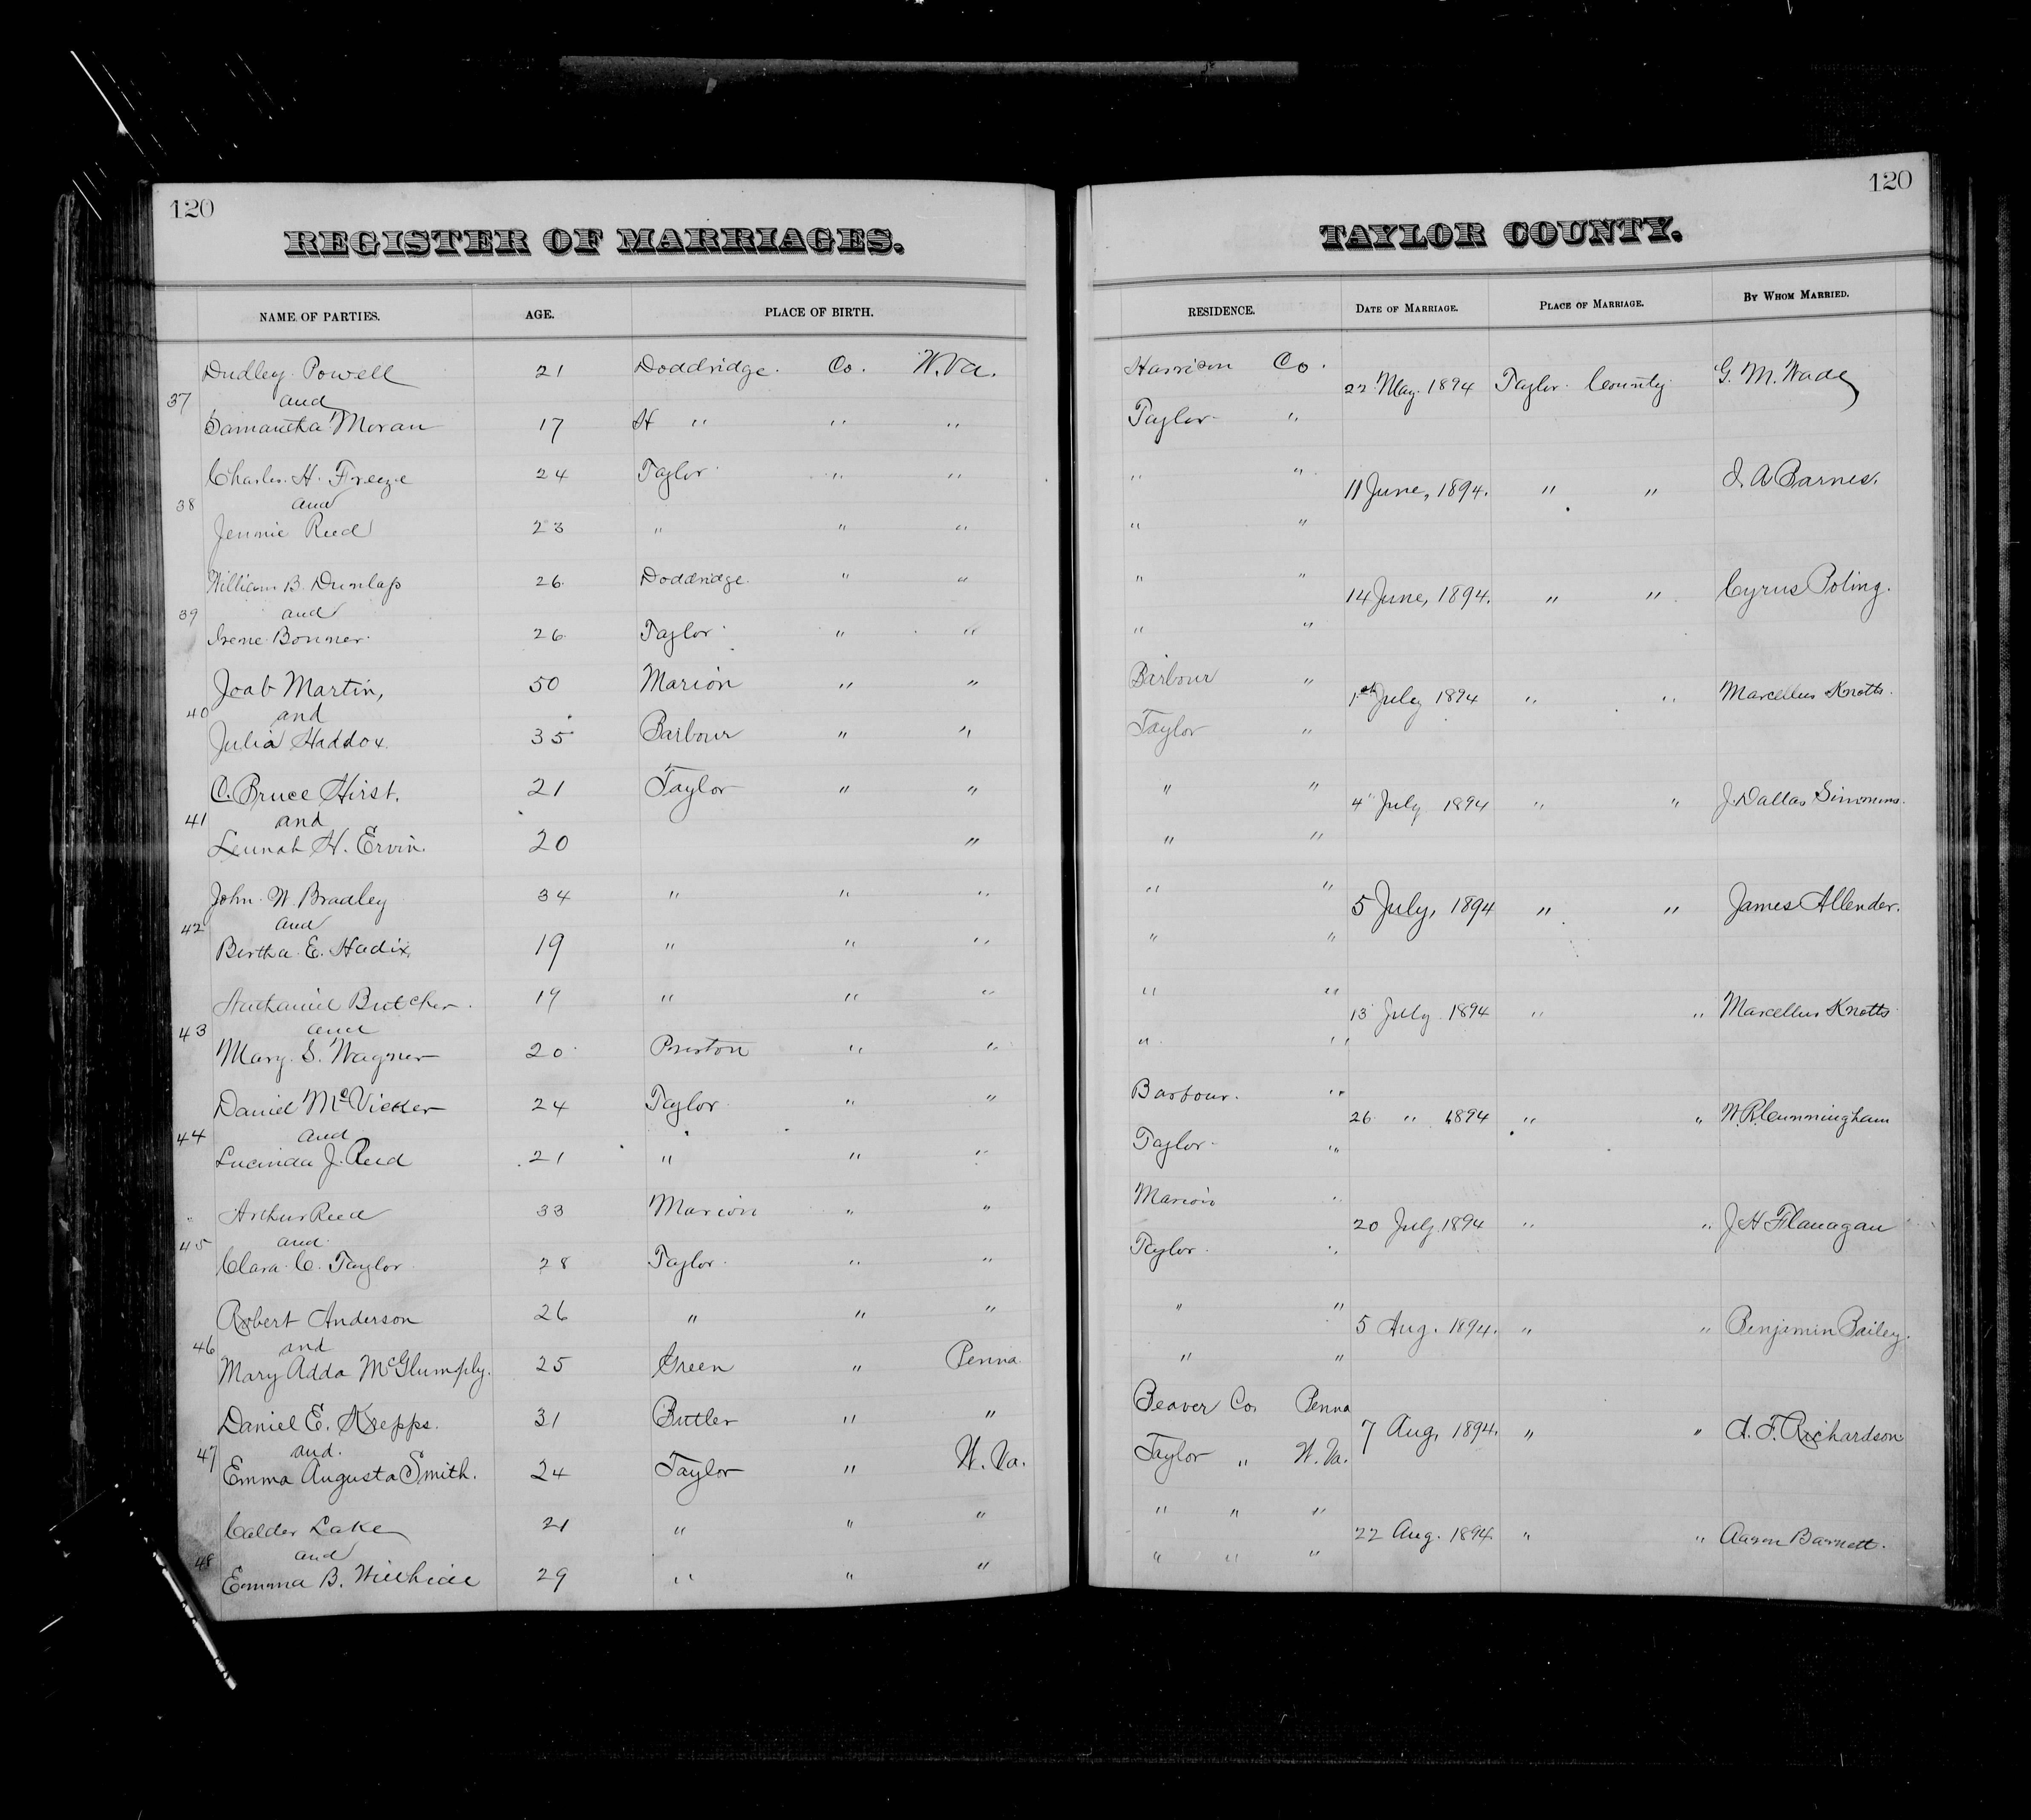 120
REGISTER OF MARRIAGES.
NAME OF PARTIES. AGE. PLACE OF BIRTH.
Dudley Powell 21 Doddridge Co. W. Va.
37 and
Samantha Moran 17 H " " "
Charles H. Freeze 24 Taylor " "
38 and
Jennie Reed 23 " " "
William B. Dunlap 26 Doddridge " "
39 and
Irene Bonner 26 Taylor " "
Joab Martin, 50 Marion " "
40 and
Julia Haddox 35 Barbour " "
C. Bruce Hirst. 21 Taylor " "
41 and
Lennah H. Ervin. 20 "
John W. Bradley 34 " " "
42 and
Bertha E. Hadix 19 " " "
Nathaniel Butcher 19 " " "
43 and
Mary S. Wagner 20 Preston " "
Daniel McVicker 24 Taylor " "
44 and
Lucinda J. Reed 21 " " "
Arthur Reed 33 Marion " "
45 and
Clara C. Taylor 28 Taylor " "
Robert Anderson 26 " " "
46 and
Mary Adda McGlumphy. 25 Green " Penna
Daniel E. Krepps. 31 Butler " "
47 and.
Emma Augusta Smith. 24 Taylor " W. Va.
Calder Lake 21 " " "
48 and
Emma B. 29 " " "
120
TAYLOR COUNTY.
RESIDENCE. DATE OF MARRIAGE. PLACE OF MARRIAGE. BY WHOM MARRIED.
Harrison Co.
22 May 1894 Taylor County G. M. Wade
Taylor "
" "
11 June, 1894. " " A Barnes.
" "
" "
14 June, 1894. " " Cyrus Poling.
" "
Barbour "
1st July 1894 " " Marcellus Knotts.
Taylor "
" "
4" July 1894 " " J. Dallas Simmons.
" "
" "
5 July, 1894 " " James Allender.
" "
" "
13 July 1894 " " Marcellus Knotts
" "
Barbour. "
26 " 1894 " " W. R. Cunningham
Taylor "
Marion "
20 July 1894 " " J H Flanagan
Taylor "
" "
5 Aug. 1894. " " Benjamin Bailey.
" "
Beaver Co. Penna
7 Aug, 1894. " " A. F. Richardson
Taylor " W. Va.
" " "
22 Aug. 1894 " " Aaron Barnett.
" " "